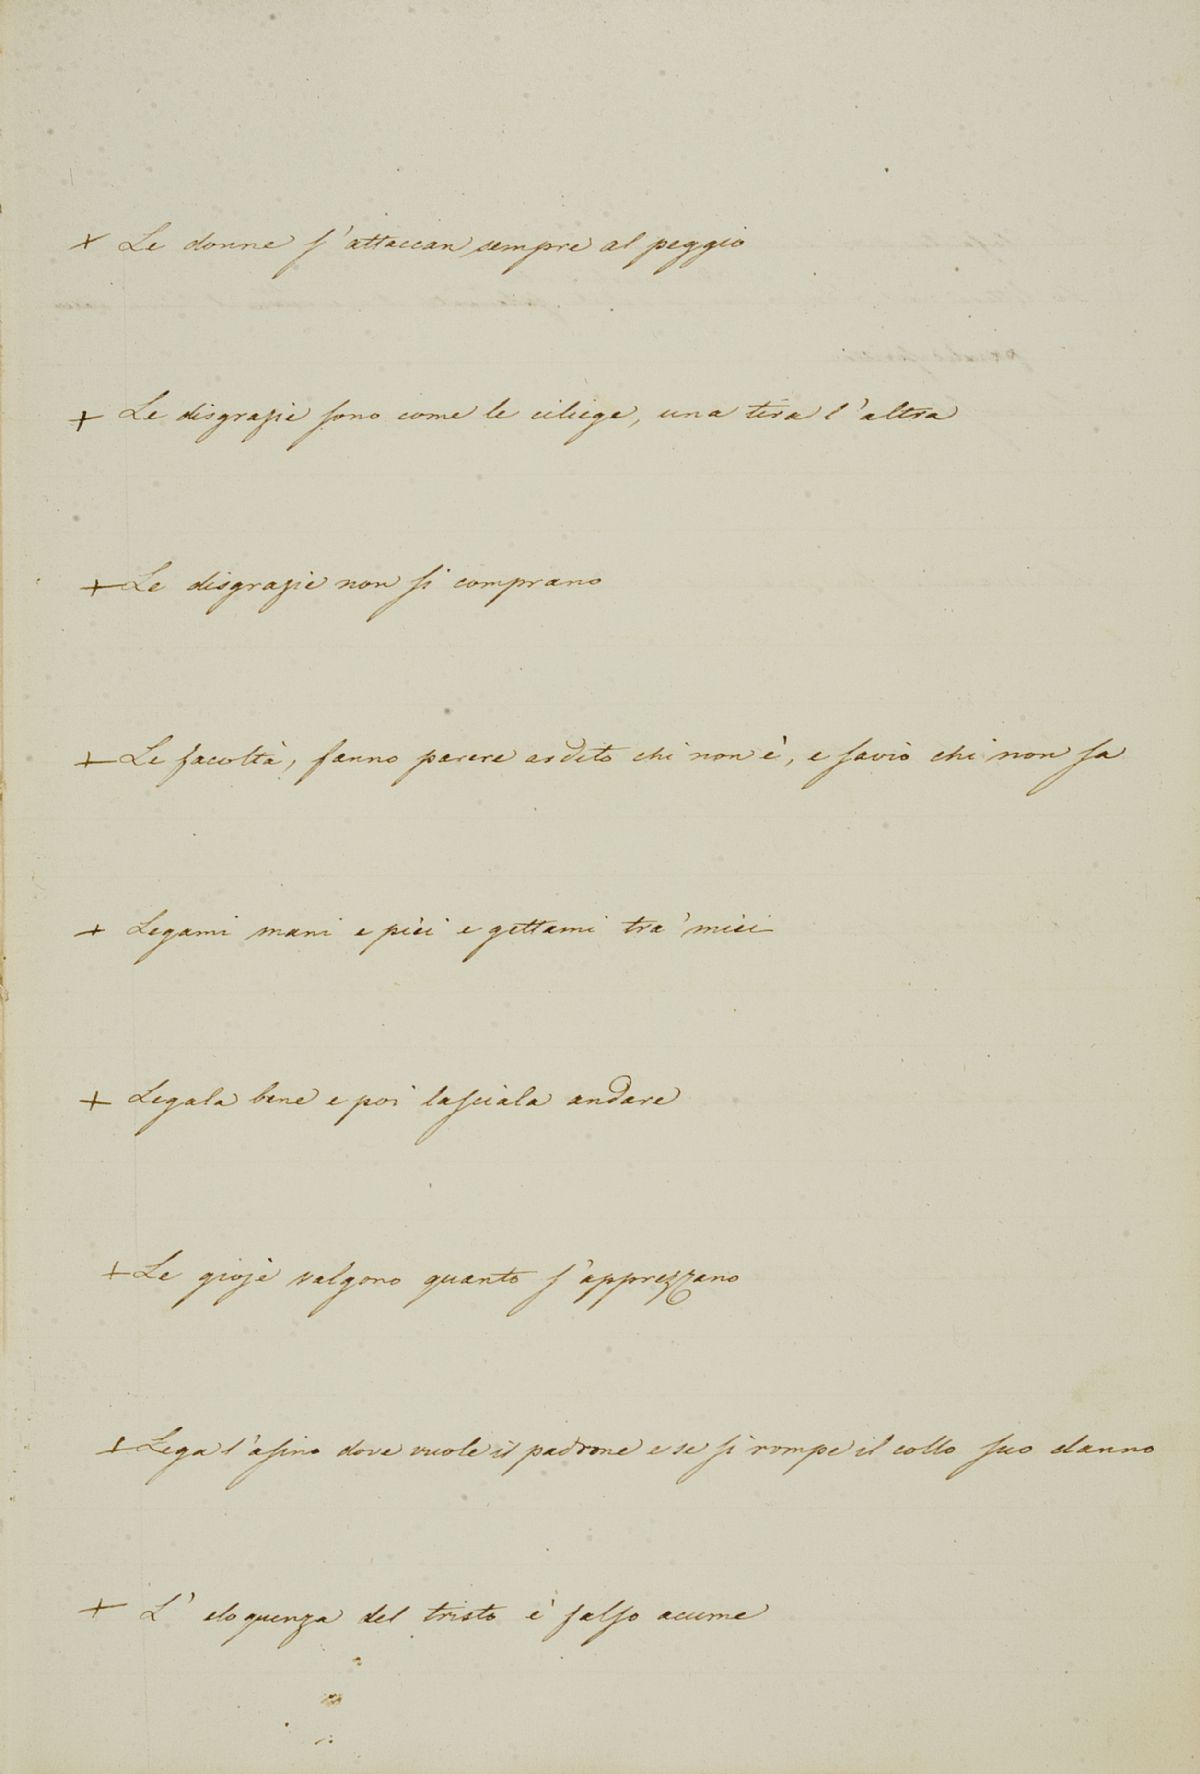 + Le donne s'attaccan sempre al peggio
+ Le disgrazie sono come le ciliege, una tira l'altra
+ Le disgrazie non si comprano
+ Le facoltà, fanno parere ardito chi non è, e savio chi non sa
+ Legami mani e piei e gettami tra' miei
+ Legala bene e poi lasciala andare
+ Le gioje valgono quanto s'apprezzano
+ Lega l'asino dove vuole il padrone e se si rompe il collo suo danno
+ L' eloquenza del tristo è falso acume